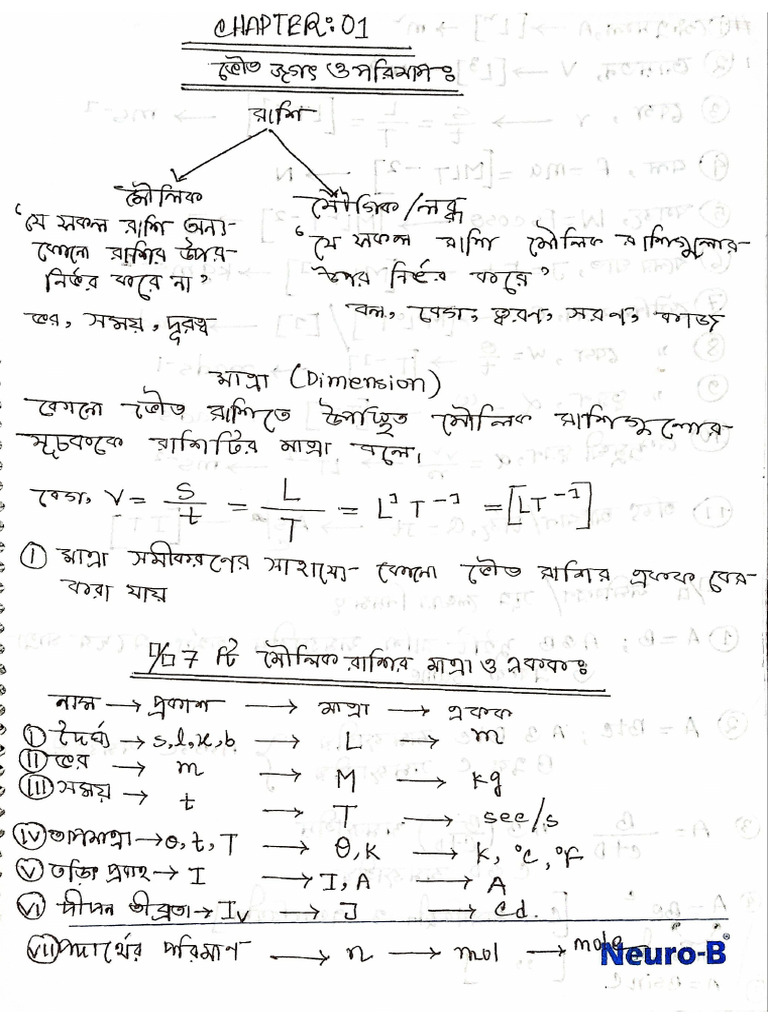 CHAPTER: 01
ভৌত জগৎ ও পরিমাপঃ
রাশি
মৌলিক
যৌগিক/লব্ধ
‘যে সকল রাশি অন্য
কোনো রাশির উপর
নির্ভর করে না’
ভর, সময়, দূরত্ব
‘যে সকল রাশি মৌলিক রাশিগুলোর
উপর নির্ভর করে’
বল, বেগ, ত্বরণ, সরণ, কাজ
মাত্রা (Dimension)
কোনো ভৌত রাশিতে উপস্থিত মৌলিক রাশিগুলোর
সূচককে রাশিটির মাত্রা বলে।
বেগ, V = s/t = L/T = L¹ T⁻¹ = [LT⁻¹]
① মাত্রা সমীকরণের সাহায্যে কোনো ভৌত রাশির একক বের
করা যায়
7 টি মৌলিক রাশির মাত্রা ও এককঃ
নাম → প্রকাশ → মাত্রা → একক
Ⓘ দৈর্ঘ্য → s, l, x, b → L → m
II ভর → m → M → kg
III সময় → t → T → sec/s
IV তাপমাত্রা → θ, t, T → θ, K → K, °C, °F
V তড়িৎ প্রবাহ → I → I, A → A
VI দীপন তীব্রতা → Iv → J → cd.
VII পদার্থের পরিমাণ → n → mol → mole
Neuro-B